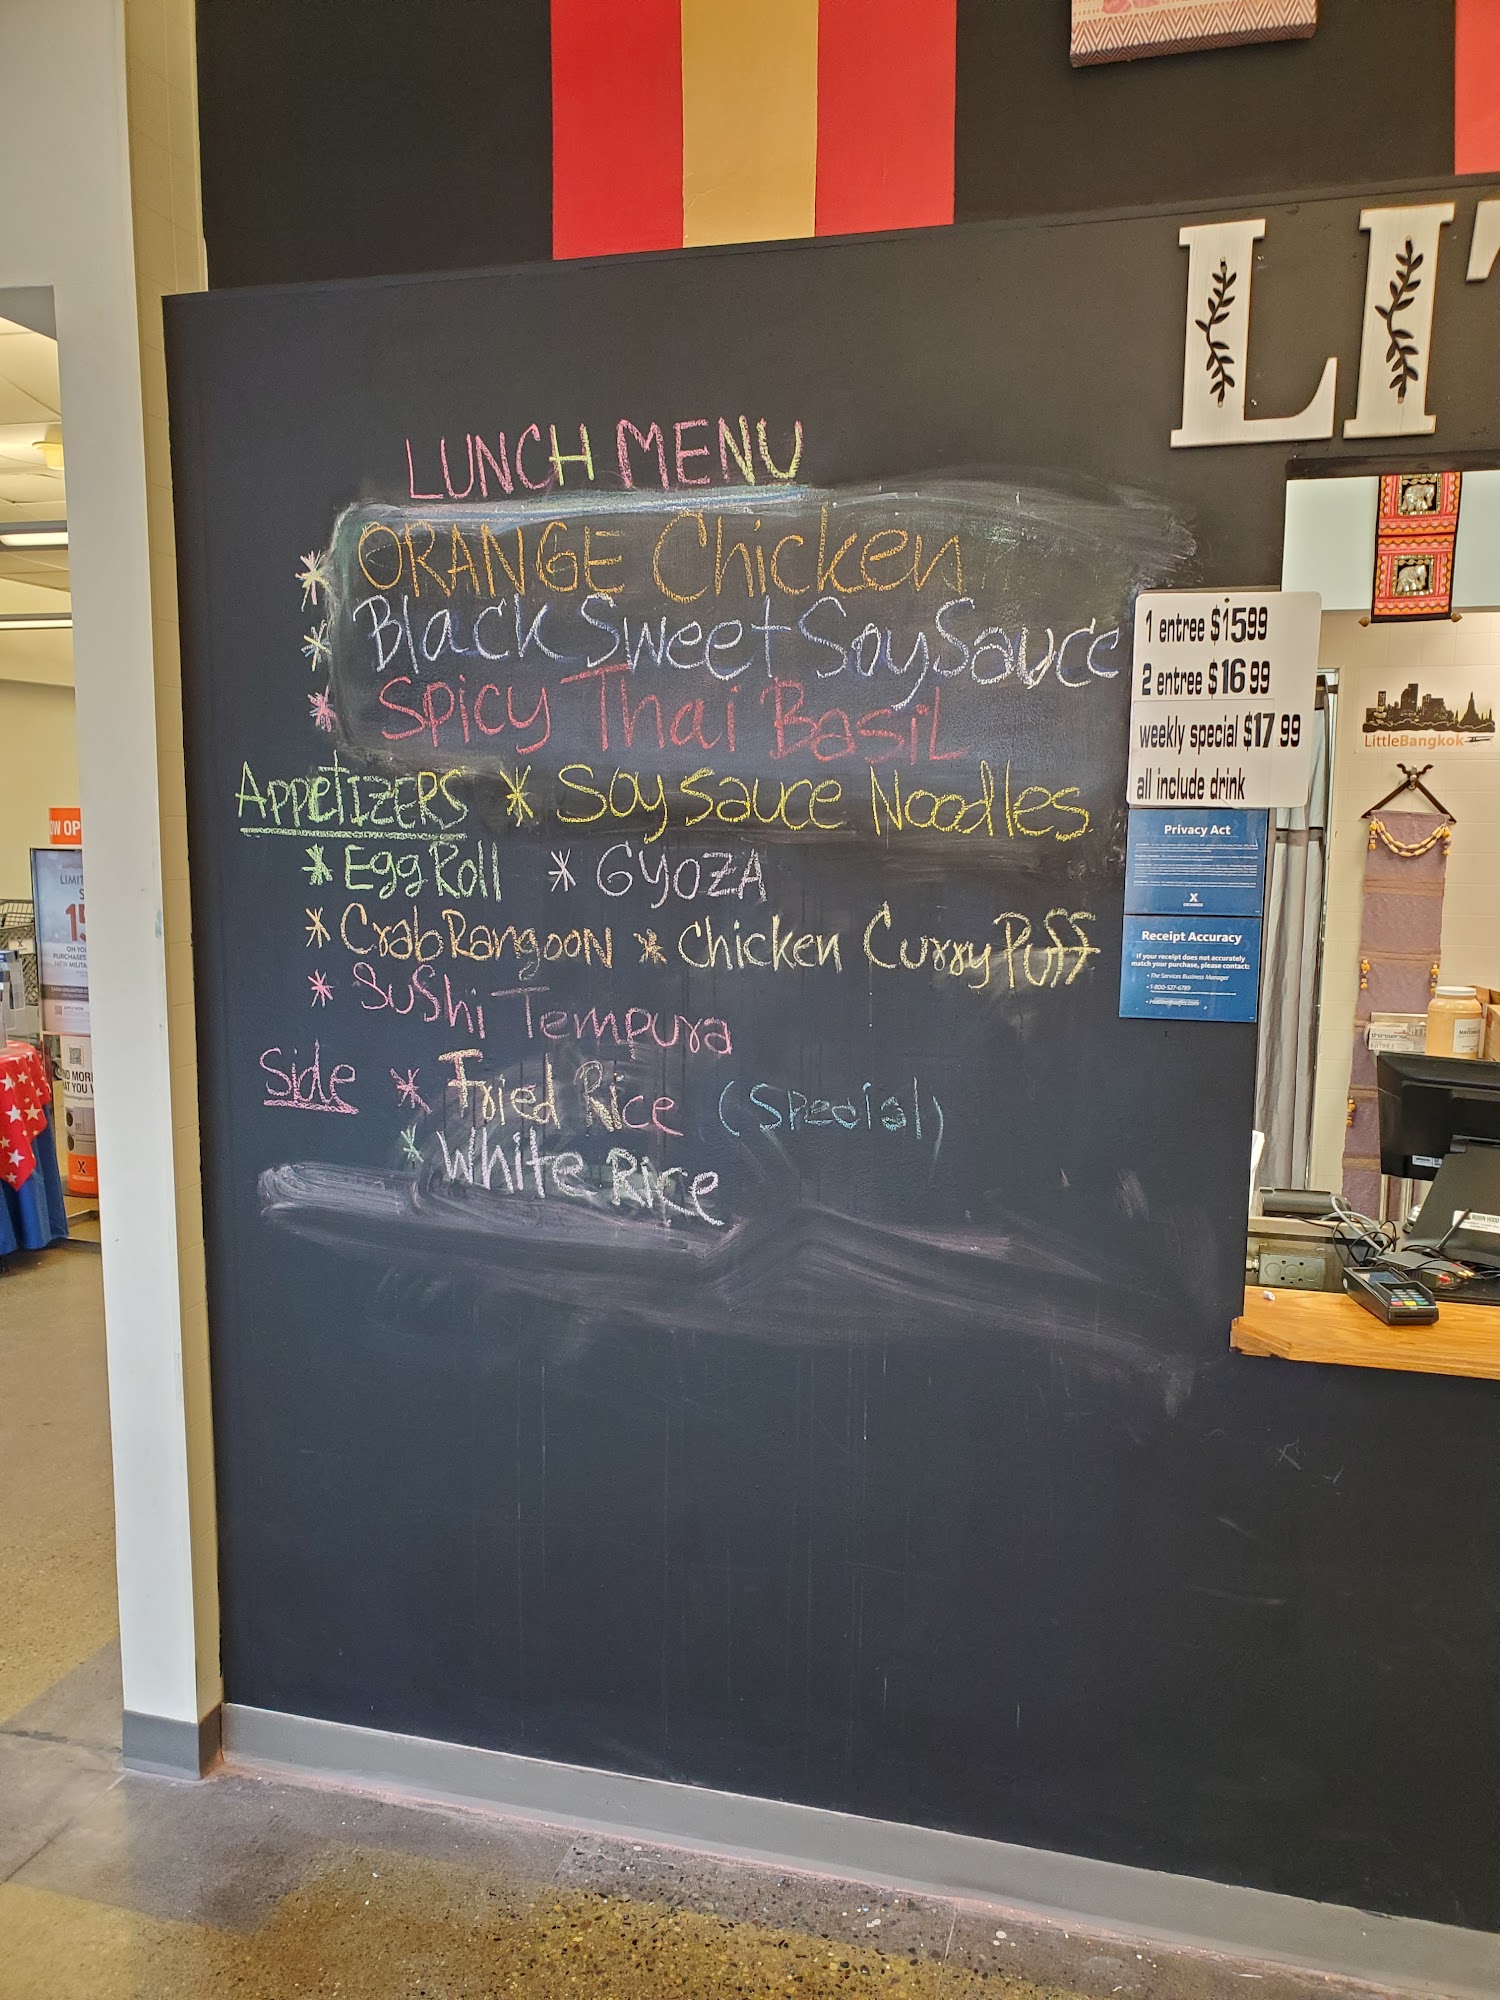 LIT
LUNCH MENU
* ORANGE Chicken
* Black Sweet Soy Sauce
* Spicy Thai Basil
Appetizers * Soy sauce Noodles
* Egg Roll * Gyoza
* Crab Rangoon * Chicken Curry Puff
* Sushi Tempura
Side * Fried Rice (Special)
* White Rice
1 entree $15.99
2 entree $16.99
weekly special $17.99
all include drink
Privacy Act
X
EXCHANGE
Receipt Accuracy
If your receipt does not accurately
match your purchase, please contact:
• The Services Business Manager
• 1-800-527-6789
LittleBangkok
OW OP
LIMIT
S
15
ON YOU
PURCHASES
NEW MILITA
ND MORE
AT YOU
X
EXCHANGE